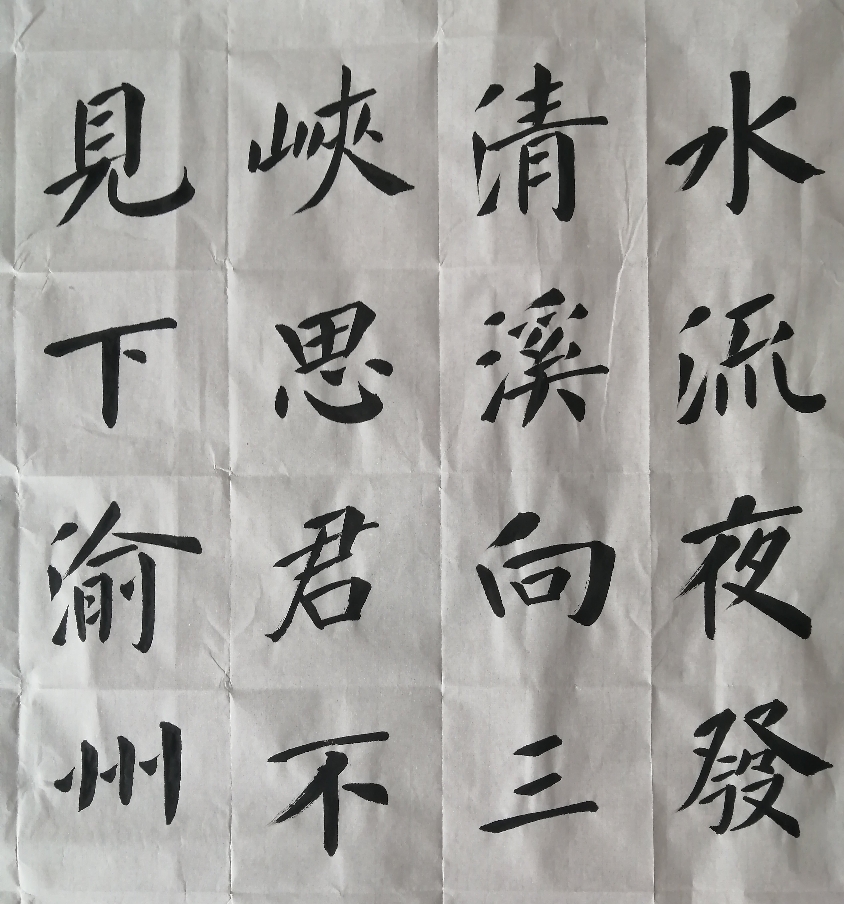 水流夜發
清溪向三
峽思君不
見下渝州